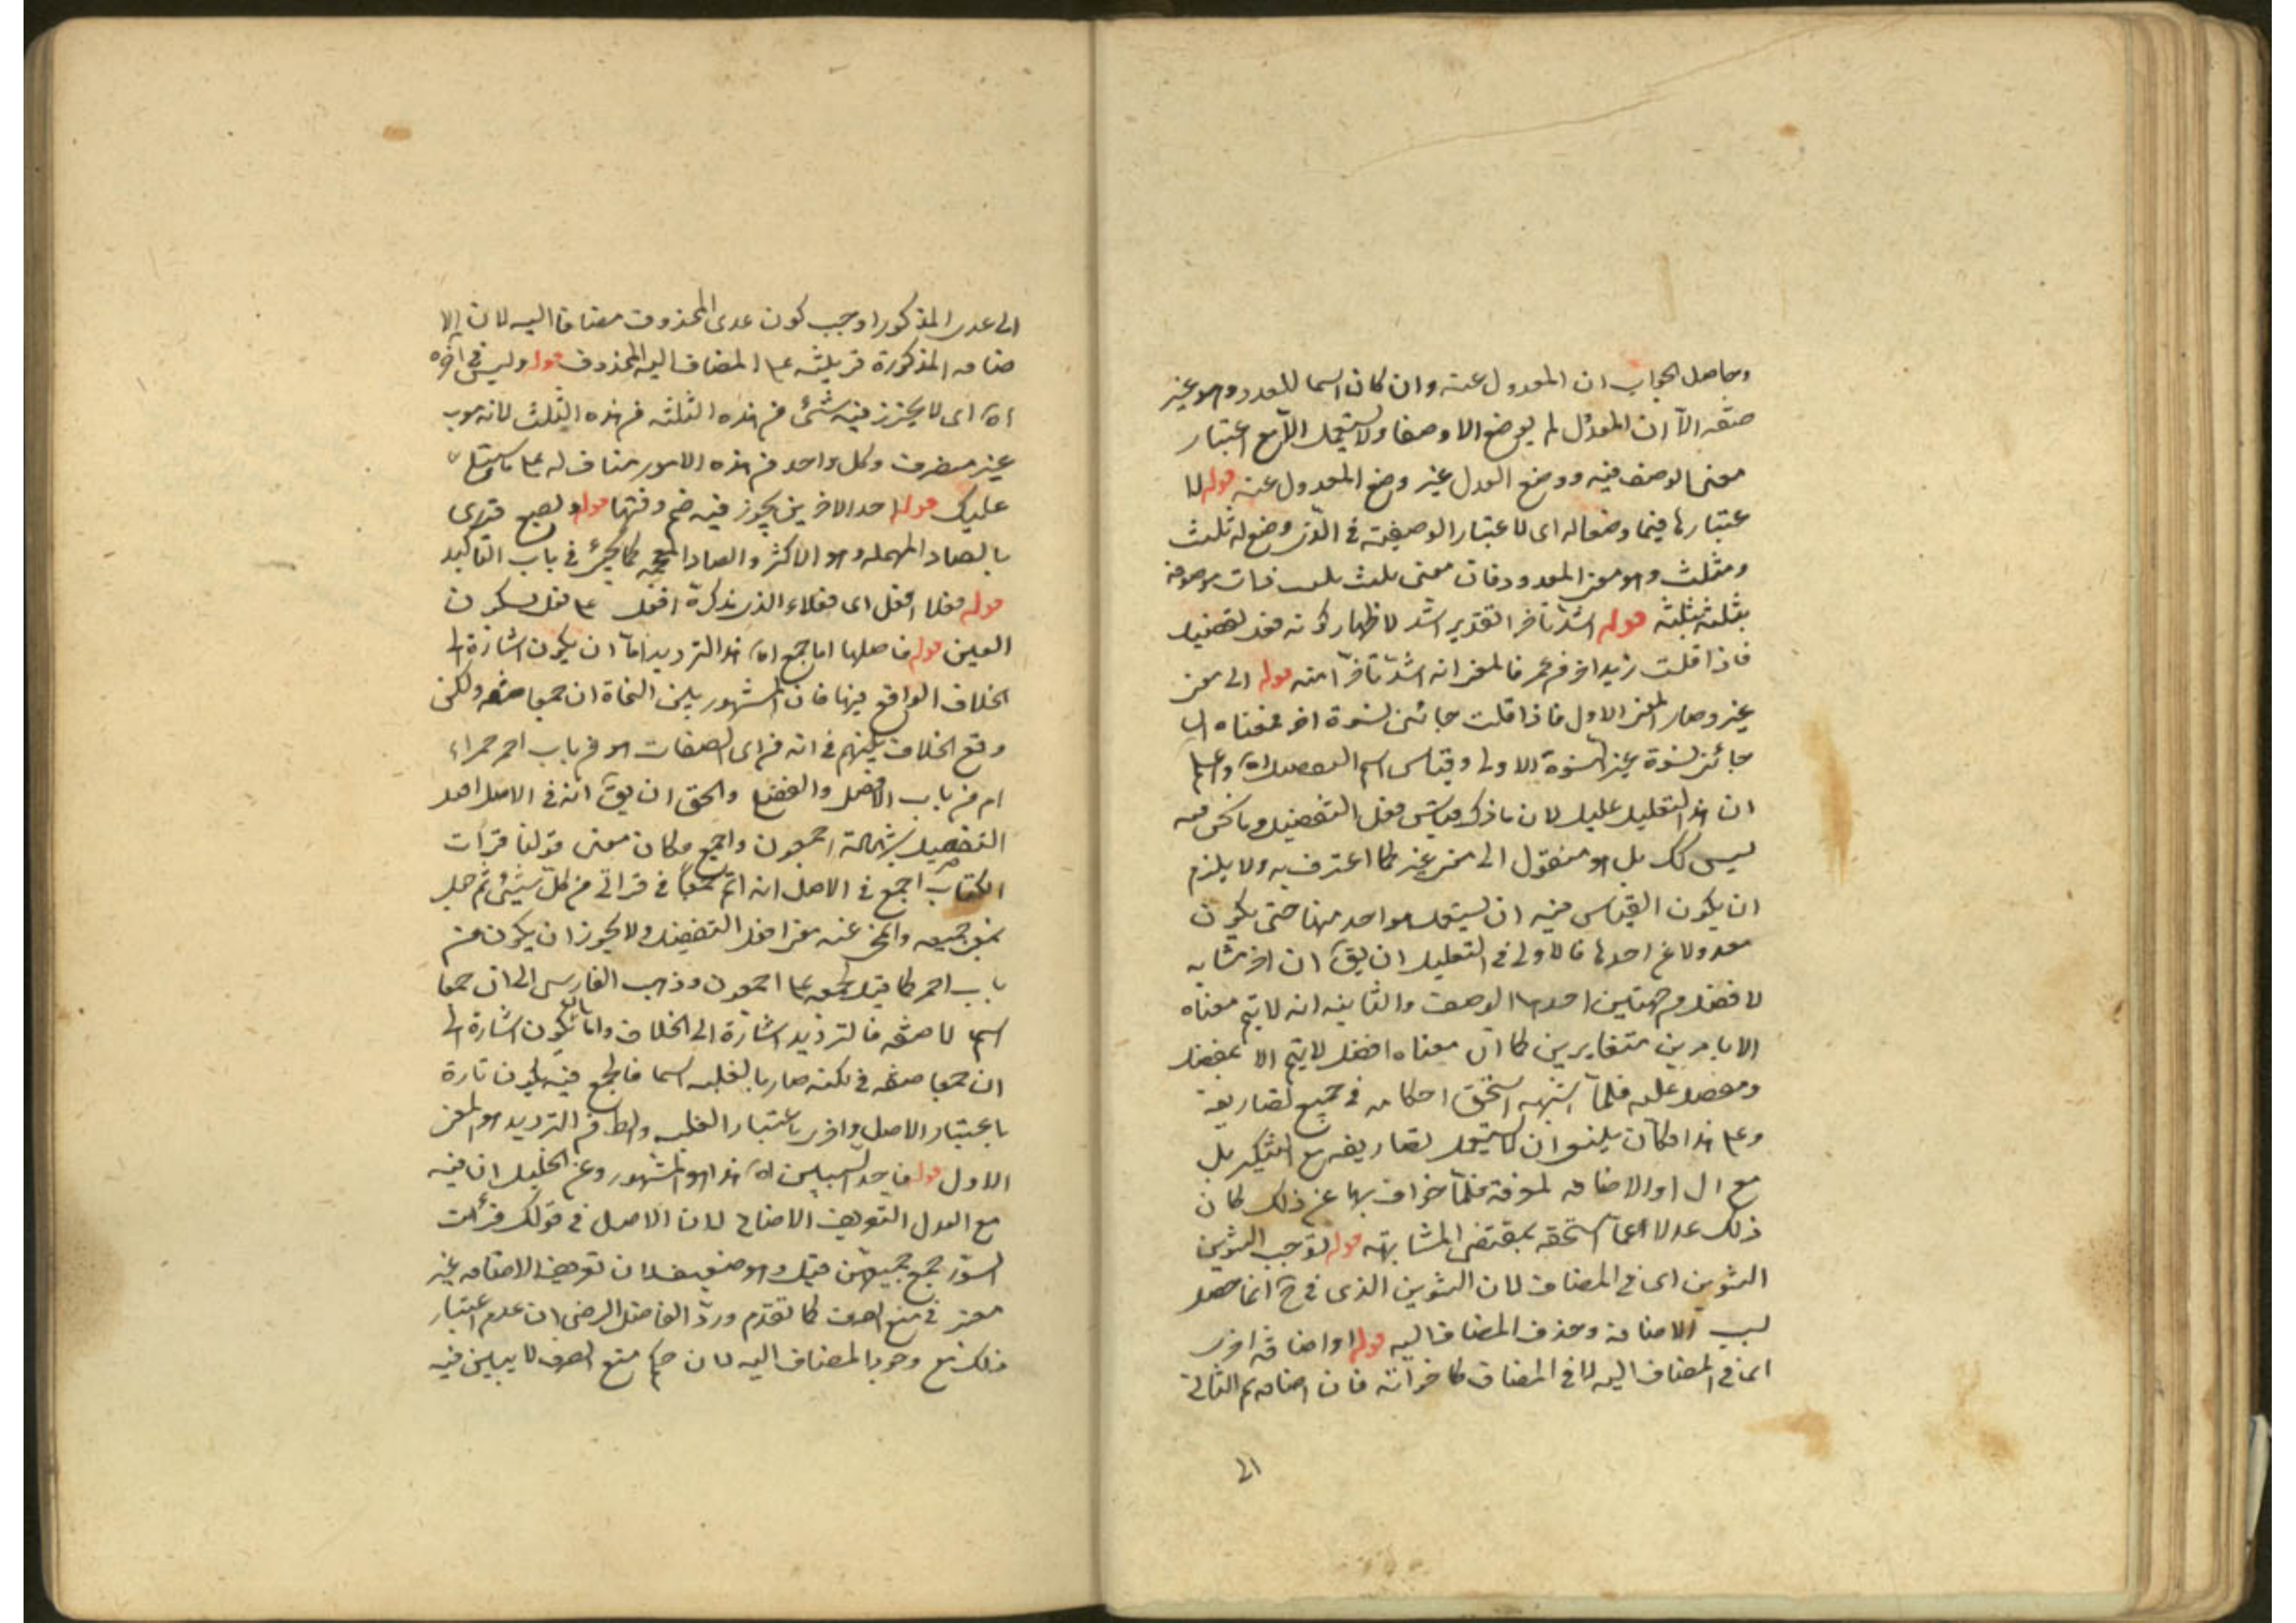 وحاصل الجواب ان المعدول عنه وان كان اسما للعدد وهو غير
صفة الا ان المعدول لم يوضع الا وصفا ولا يستعمل الا مع اعتبار
معنى الوصف فيه ووضع العدل غير وضع المعدول عنه قوله لا
عتبارها فيما وضعا له اى لاعتبار الوصفية في الذى وضع له ثلث
ومثلث وهو معنى المعدود فان معنى ثلث ذات موصوفة
بثلثة ثلثة قوله اشد تأخرا لتقدير اشد لاظهار كونه افعل تفضيل
فاذا قلت زيد اخر من عمر فالمعنى انه اشد تأخرا منه قوله الى معنى
غير وصار المعنى الاول فاذا قلت جائنى نسوة اخر فمعناه اى
جائنى نسوة غير النسوة الاولى وقياس اسم التفضيل اه واعلم
ان هذا التعليل عليل لان ما ذكر قياس افعل التفضيل وما نحن فيه
ليس كك بل هو منقول الى معنى غير كما اعترف به ولا يلزم
ان يكون القياس فيه ان يستعمل بواحد منها حتى يكون
معدولا عن احدها فالاولى في التعليل ان يق ان اخر مشابه
لافضل من جهتين احدهما الوصف والثانية انه لا يتم معناه
الا بامرين متغايرين كما ان معناه افضل لا يتم الا بمفضل
ومفضل عليه فلما اشبهه استحق احكامه في جميع تصاريفه
وعلى هذا فكان ينبغى ان لا يستعمل تصاريفه مع التنكير بل
مع ال او الاضافه لمعرفة فلما خولف بها عن ذلك كان
ذلك عدلا عما استحقه بمقتضى المشابهة قوله توجب التنوين
التنوين اى في المضاف لان التنوين الذى في ح انما حصل
لسبب الاضافة وحذف المضاف اليه قوله او اضافة اخرى
اى في المضاف اليه لا في المضاف كما فان اضافة تيم الثانى
الى
الى عدى المذكور اوجب كون عدى المحذوف مضافا اليه لان الا
ضافه المذكورة قرينة على المضاف اليه المحذوف قوله وليس في اخره
اه اى لا يجوز فيه شئ من هذه الثلثه من هذه الثلث لانه معرب
غير منصرف وكل واحد من هذه الامور مناف له على ما سيتلى
عليك قوله احد الاخرين يجوز فيه ضم وفتها قوله وبصع قرى
بالصاد المهمله وهو الاكثر والضاد المعجمه كما يجئ في باب التاكيد
قوله فعلا افعل اى فعلاء الذى مذكره افعل على فعل بسكون
العين قوله فاصلها اما جمع اه هذا الترديد اما ان يكون اشارة الى
الخلاف الواقع فيها فان المشهور بين النحاة ان جمعا صفه ولكن
وقع الخلاف بينهم في انه من اى الصفات هو من باب احمر حمراء
ام من باب الافضل والفضلى والحق ان يق انه في الاصل افعل
التفضيل بشهادة اجمعون واجمع فكان معنى قولنا قرأت
الكتاب اجمع في الاصل انه اتم جمعا في قرائتى من كل شيئ ثم جعل
بمعنى جميعه وانمحى عنه معنى افعل التفضيل ولا يجوز ان يكون من
باب احمر كما قيل لجمعه على اجمعون وذهب الفارسى الى ان جمعا
اسم لا صفه فالترديد اشارة الى الخلاف واما ان يكون اشارة الى
ان جمعا صفه في لكنه صار بالغلبه اسما فالجمع فيه يكون تارة
باعتبار الاصل واخرى باعتبار الغلبه والظ من الترديد هو المعنى
الاول قوله فاحد السببين اه هذا هو المشهور وعن الخليل ان فيه
مع العدل التعريف الاضافى لان الاصل في قولك قرأت
السور جمع جميعهن قيل وهو ضعيف لان تعريف الاضافه غير
معتبر في منع الصرف كما تقدم ورد الفاضل الرضى ان عدم اعتبار
ذلك مع وجود المضاف اليه لان حكم منع الصرف لا يبين فيه